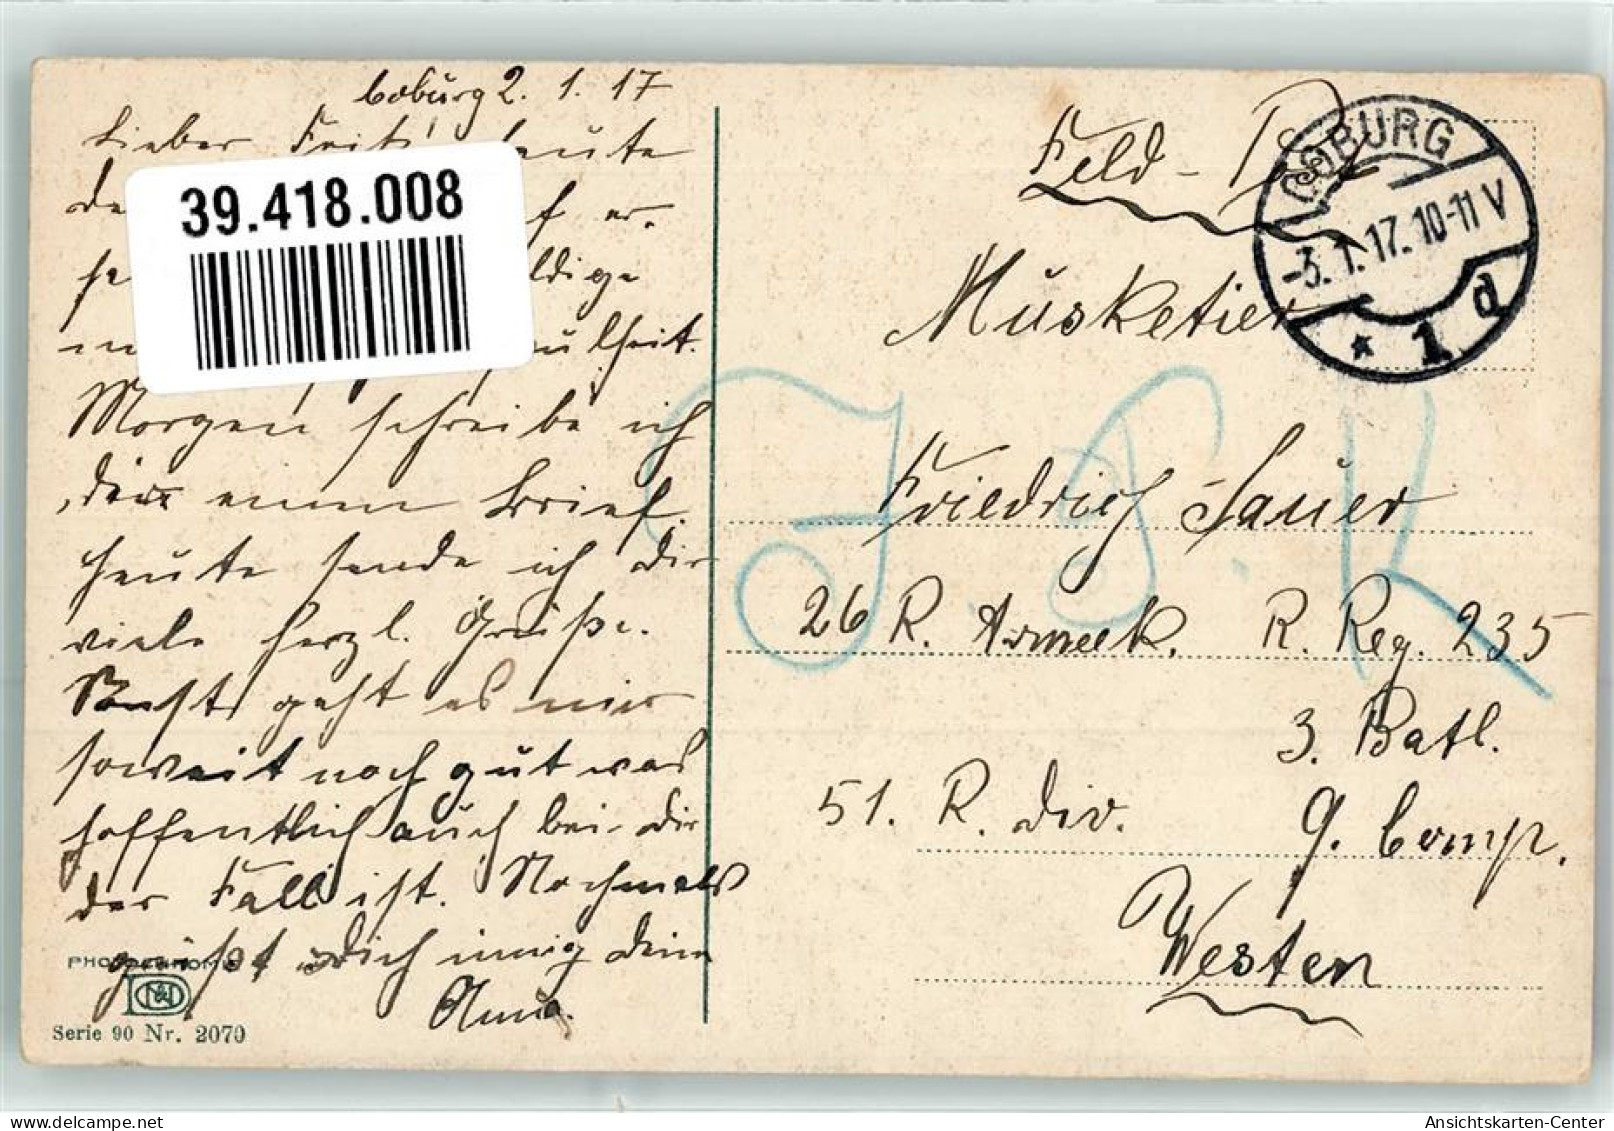 Coburg 2. 1. 17
Lieber Fritz! Heute
39.418.008
er-
ldige
ulheit.
Morgen schreibe ich
dir einen Brief.
heute sende ich dir
viele herzl. Grüße.
Sonst geht es mir
soweit noch gut was
hoffentlich auch bei dir
der Fall ist. Nochmals
grüßt Dich innig deine
Anna.
PHOTOCHROMIE
Serie 90 Nr. 2070
Feld-Post
COBURG
-3.1.17.10-11V
* 1 d
Musketier
Friedrich Sauer
26 R. Armeek. R. Reg. 235
3. Batl.
51. R. Div. 9. Comp.
Westen
Ansichtskarten-Center